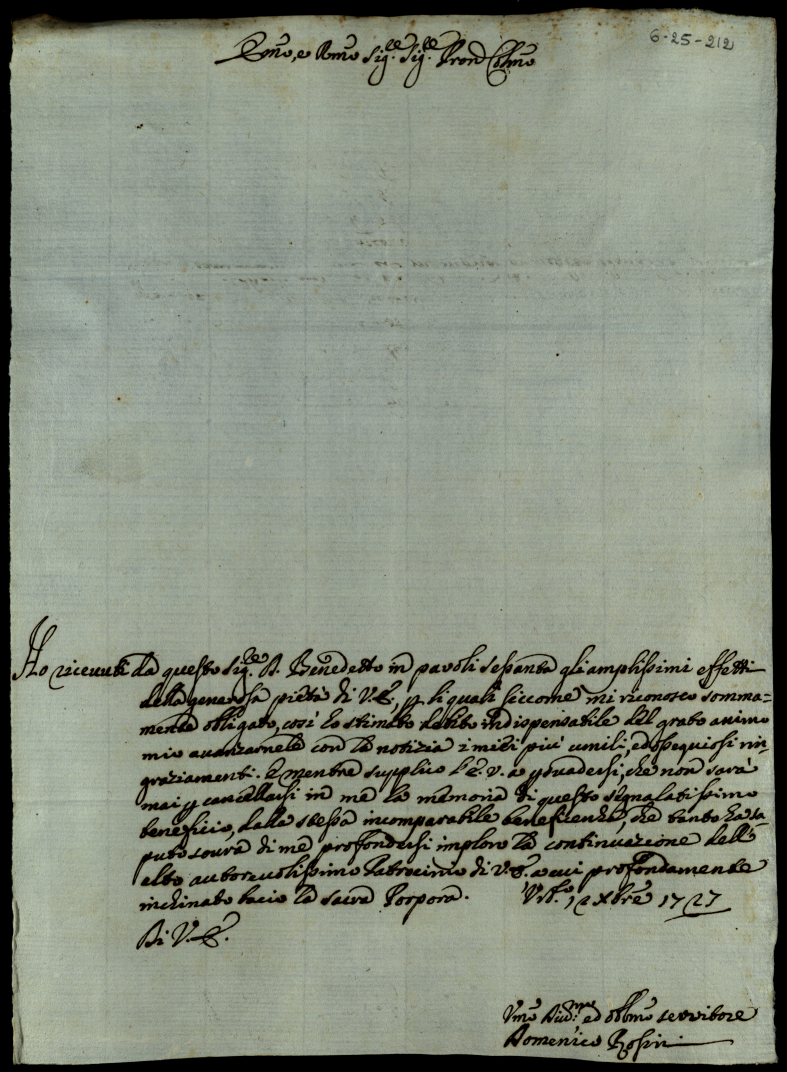 6-25-212
Emo, e Rmo Sig.re Sig.re Pron Colmo
Ho ricevuti da questo Sig.re D. Benedetto in pavoli sessanta gli amplissimi effetti
della generosa pietà di V.E., p li quali siccome mi riconosco somma=
mente obligato, così ho stimato debito indispensabile del grato animo
mio avanzarnele con la notizia i miei più umili, ed ossequiosi rin=
graziamenti. E mentre supplico l'E.V. a psuadersi, che non sarà
mai p cancellarsi in me la memoria di questo segnalatissimo
beneficio, dalla stessa incomparabile beneficenza, che tanto ha sa=
puto sovra di me profondersi imploro la continuazione dell'
alto autorevolissimo Patrocinio di V.E. a cui profondamente
inchinato bacio la sacra Porpora. Urb.o 12 Xbre 1727
Di V.E.
Umo Div.mo ed obbmo servitore
Domenico Rosini